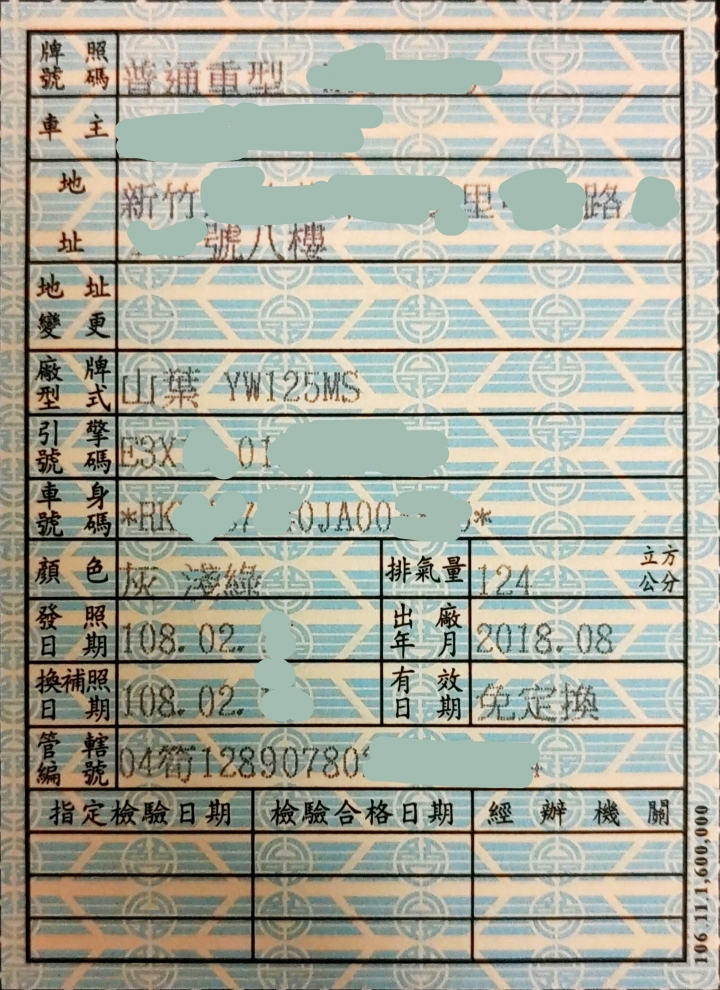 牌照號碼 普通重型
車主
地址 新竹 里 路
號八樓
地址變更
廠牌型式 山葉 YW125MS
引擎號碼 E3X 01
車身號碼 *RK 0JA00 *
顏色 灰 淺綠 排氣量 124 立方公分
發照日期 108.02. 出廠年月 2018.08
換補照日期 108.02. 有效日期 免定換
管轄編號 04筍12890780
指定檢驗日期 檢驗合格日期 經辦機關
106.11/1,600,000